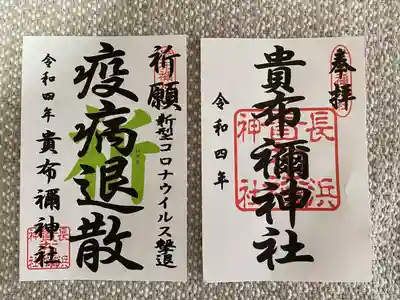 奉拝
貴布禰神社
令和四年
長浜
神社
祈願
新型コロナウイルス撃退
疫病退散
祈
令和四年
貴布禰神社
長浜